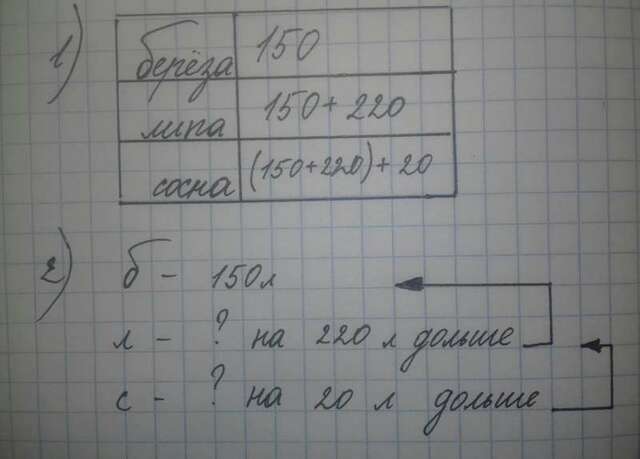 1) берёза 150
липа 150 + 220
сосна (150+220) + 20
2) б - 150л
л - ? на 220 л дольше
с - ? на 20 л дольше